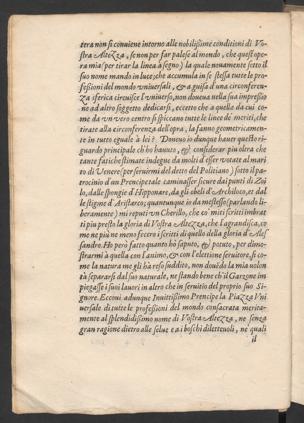 tera non si cōuiene intorno alle nobilissime conditioni di Vo-
stra AlteZZa, se non per far palese al mondo, che quest'ope-
ra mia (per tirar la linea à segno) la quale nouamente sotto il
suo nome mando in luce; che accumula in se stessa tutte le pro-
fessioni del mondo vniuersali, & à guisa d'una circonferen-
Za sferica circuisce l'vniuerso, non doueua nella sua impressio
ne ad altro soggetto dedicarsi, eccetto che à quella da cui co-
me da vn vero centro si spiccano tutte le linee de meriti, che
tirate alla circonferenza dell'opra, la fanno geometricamen-
te in tutto eguale à lei. Doueuo io dunque hauer questo ri-
guardo principale ch'ho hauuto, & considerar piu oltra che
tante fatiche stimate indegne da molti d'esser votate al mari
to di Venere (per seruirmi del detto del Politiano) sotto il pa-
trocinio d'un Prencipe tale caminasser sicure dai punti di Zoi
lo, dalle spongie d'Hipponate, da gli obeli d'Archiloco, et dal
le stigme d'Aristarco; quantunque io da me stesso (parlando li-
beramente) mi reputi vn Cherillo, che co' miei scritti imbrat
ti piu presto la gloria di Vostra AlteZZa, che l'agrandisca, co
me ne più ne meno fecero i scritti di quello della gloria d'Ales
sandro. Ho però fatto quanto hò saputo, & potuto, per dimo-
strarmi à quella con l'animo, & con l'elettione seruitore, si co-
me la natura me gli hà reso suddito, non douēdo la mia volon
tà separarsi dal suo naturale, ne stando bene ch'il Garzone im
piegasse i suoi lauori in altro che in seruitio del proprio suo Si-
gnore. Eccoui adunque Inuittissimo Prencipe la PiaZZa Vni
uersale di tutte le professioni del mondo consacrata merita-
mente al splendidissimo nome di Vostra AlteZZa, ne senza
gran ragione dietro alle selue e ai boschi diletteuoli, ne' quali
il